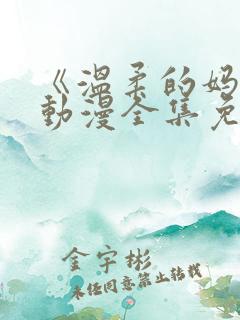 《温柔的妈
動漫全集免
金宇彬
未经同意禁止转载